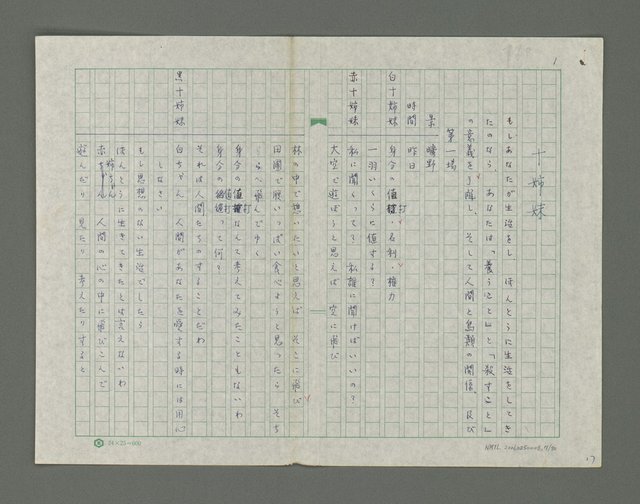 1
十姉妹
もしあなたが生活をし ほんとうに生活をしてき
たのなら、あなたは「養うこと」と「殺すこと」
の意義を了解し、そして人間と鳥類の関係、及び
第一場
景 曠野
時間 昨日
白十姉妹 身分の値打・名利・権力
一羽いくらに値する？
赤十姉妹 私に聞くって？ 私誰に聞けばいいの？
大空で遊ぼうと思えば 空に飛び
林の中で憩いたいと思えば そこに飛び
田園で腹いっぱい食べようと思ったら そち
らへ飛んでゆく
身分の値打なんて考えてみたこともないわ
身分の値打って何？
それは人間たちのすることだわ
黒十姉妹 白ちゃん 人間があなたを愛する時には用心
しなさい
もし思想のない生活でしたら
ほんとうに生きてきたとは言えないわ
赤姉ちゃん 人間の心の中に飛びこんで
遊んだり 見たり 考えたりすると
24×25=600
17